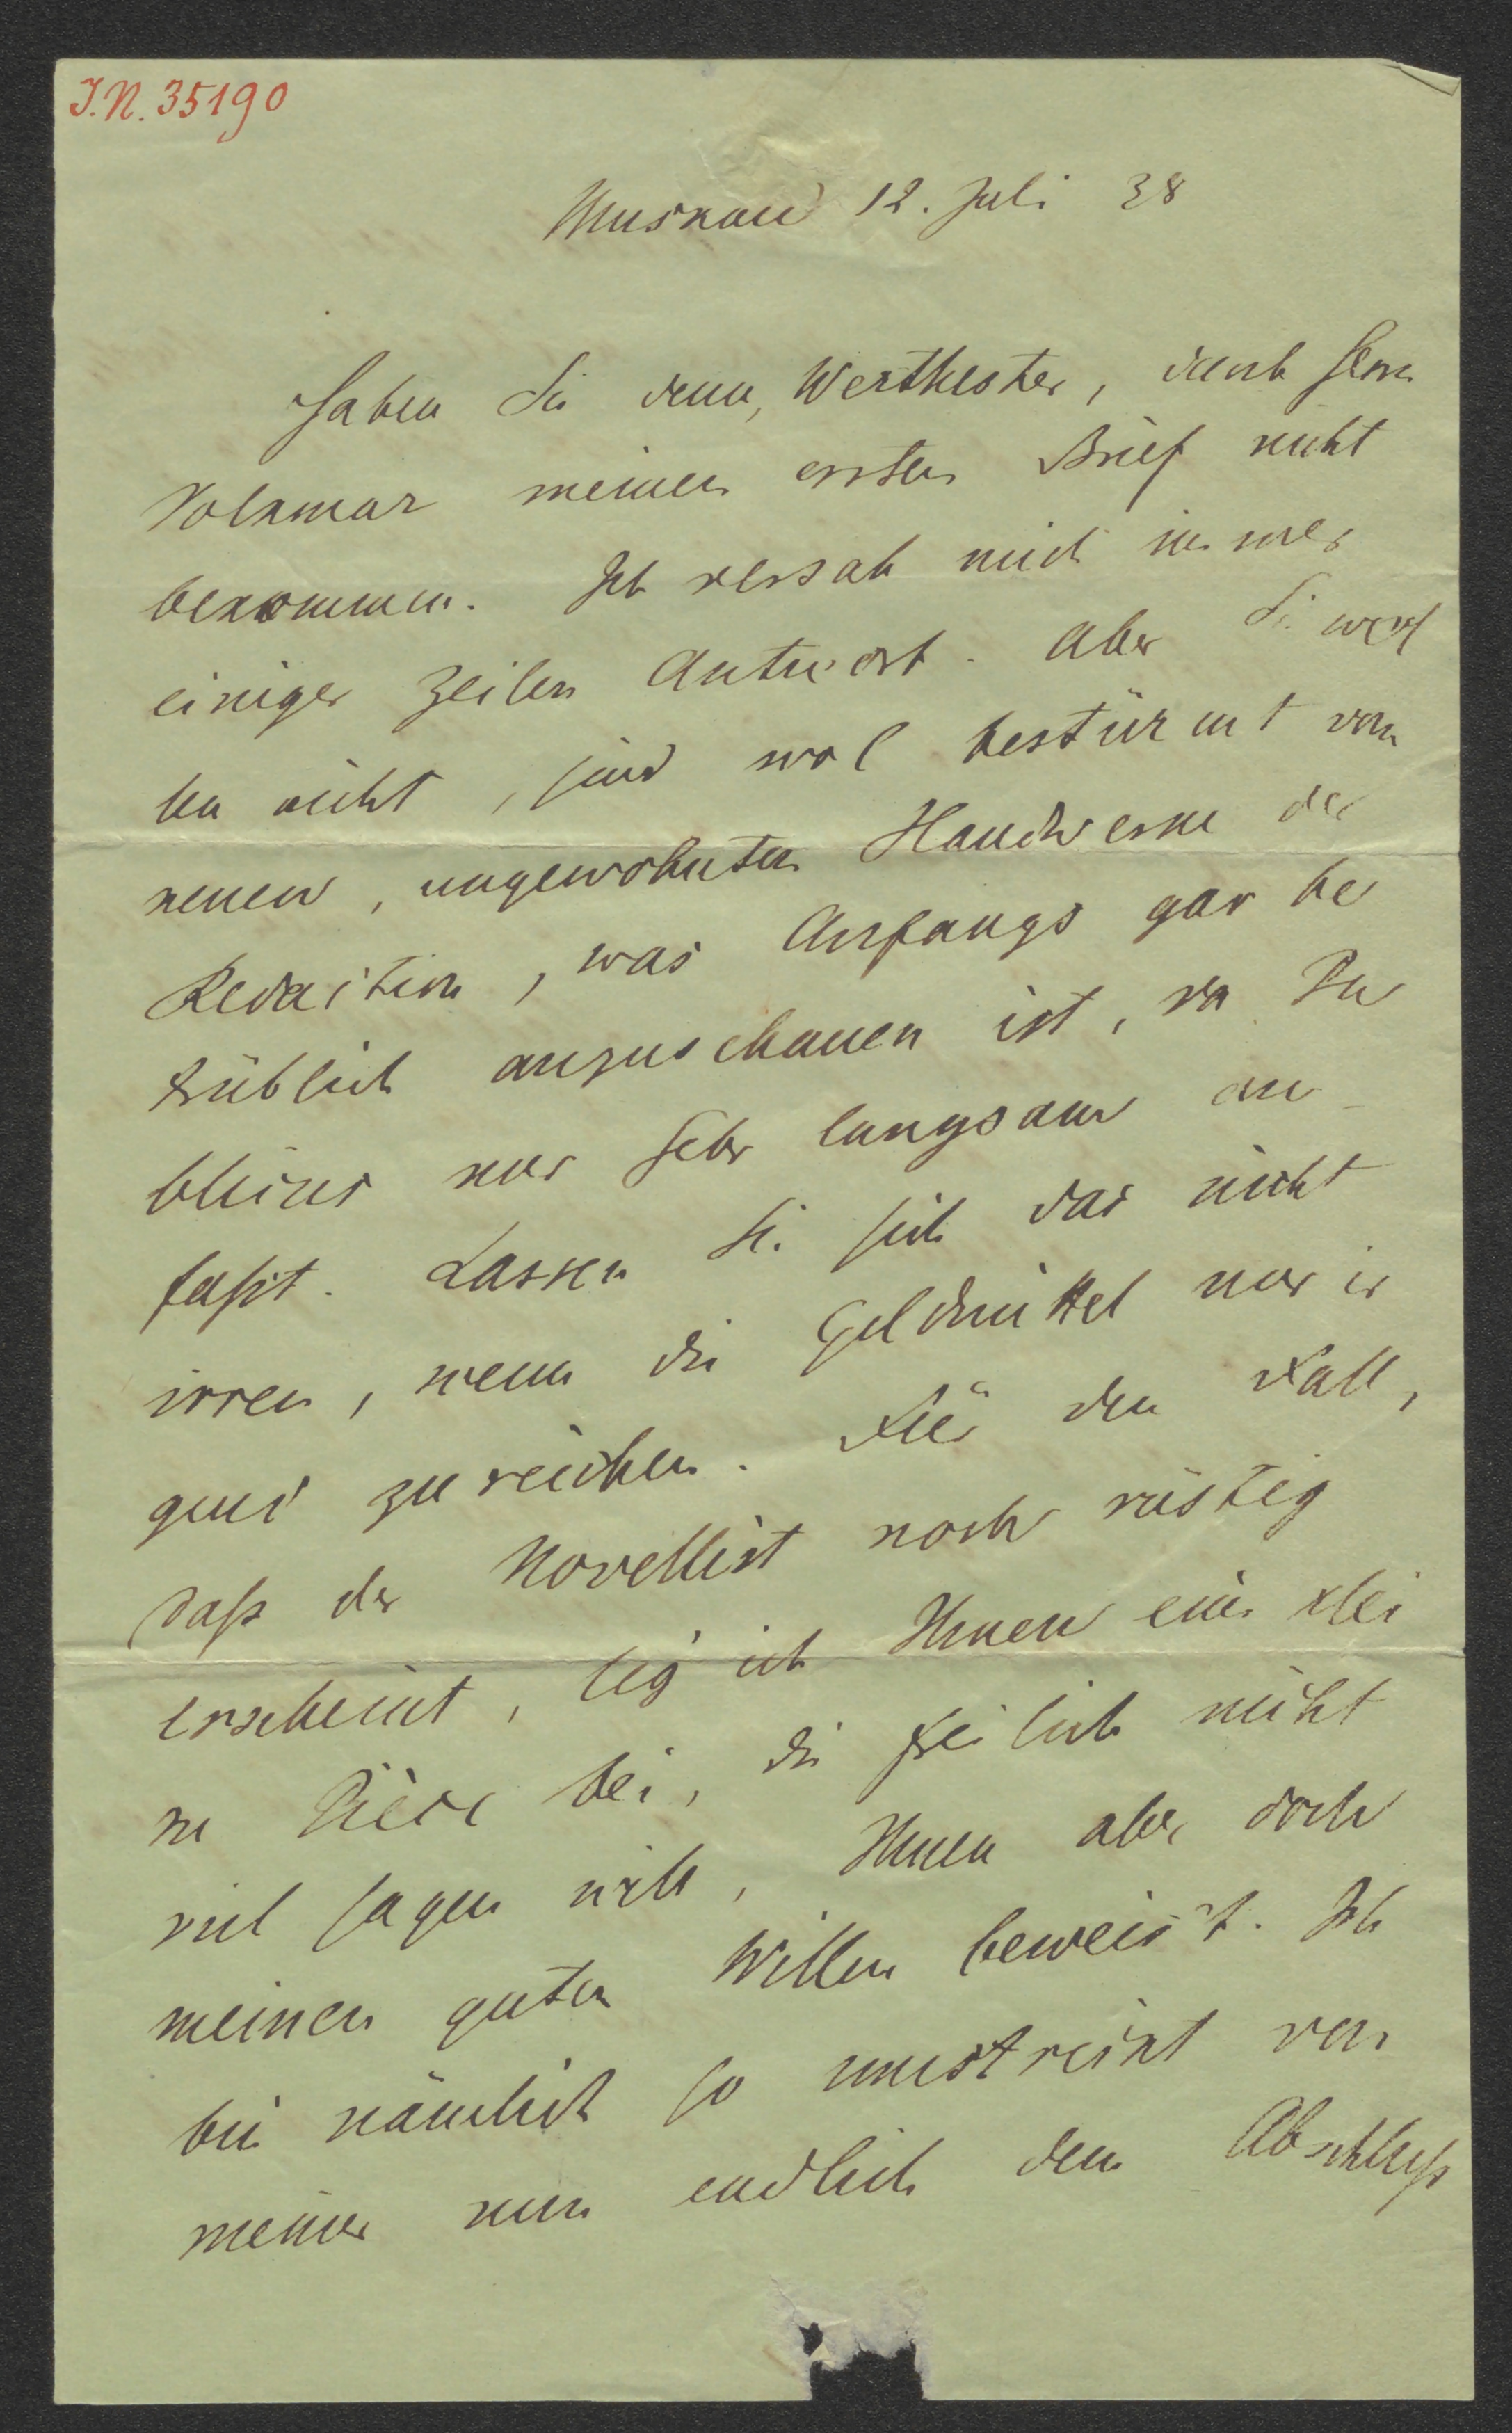 I.N. 35190
Muskau 12. Juli 38
Haben Sie denn, Werthester, durch Herrn
Volkmar meinen ersten Brief nicht
bekommen. Ich versah mich immer
einiger Zeilen Antwort. Aber Sie
nicht, sind wol bestürmt vom
neuen, ungewohnten Handwerke der
Redaction, was Anfangs gar be
trüblich anzuschauen ist, da Pu
blicus nur sehr langsam an-
faßt. Lassen Sie sich das nicht
irren, wenn die Geldmittel nur ir
gend zureichen. Für den Fall,
daß der Novellist noch rüstig
erscheint, leg' ich Ihnen eine klei
ne Pièce bei, die freilich nicht
viel sagen will, Ihnen aber doch
meinen guten Willen beweis't. Ich
bin nämlich so umstrickt von
meiner nun endlich dem Abschluß